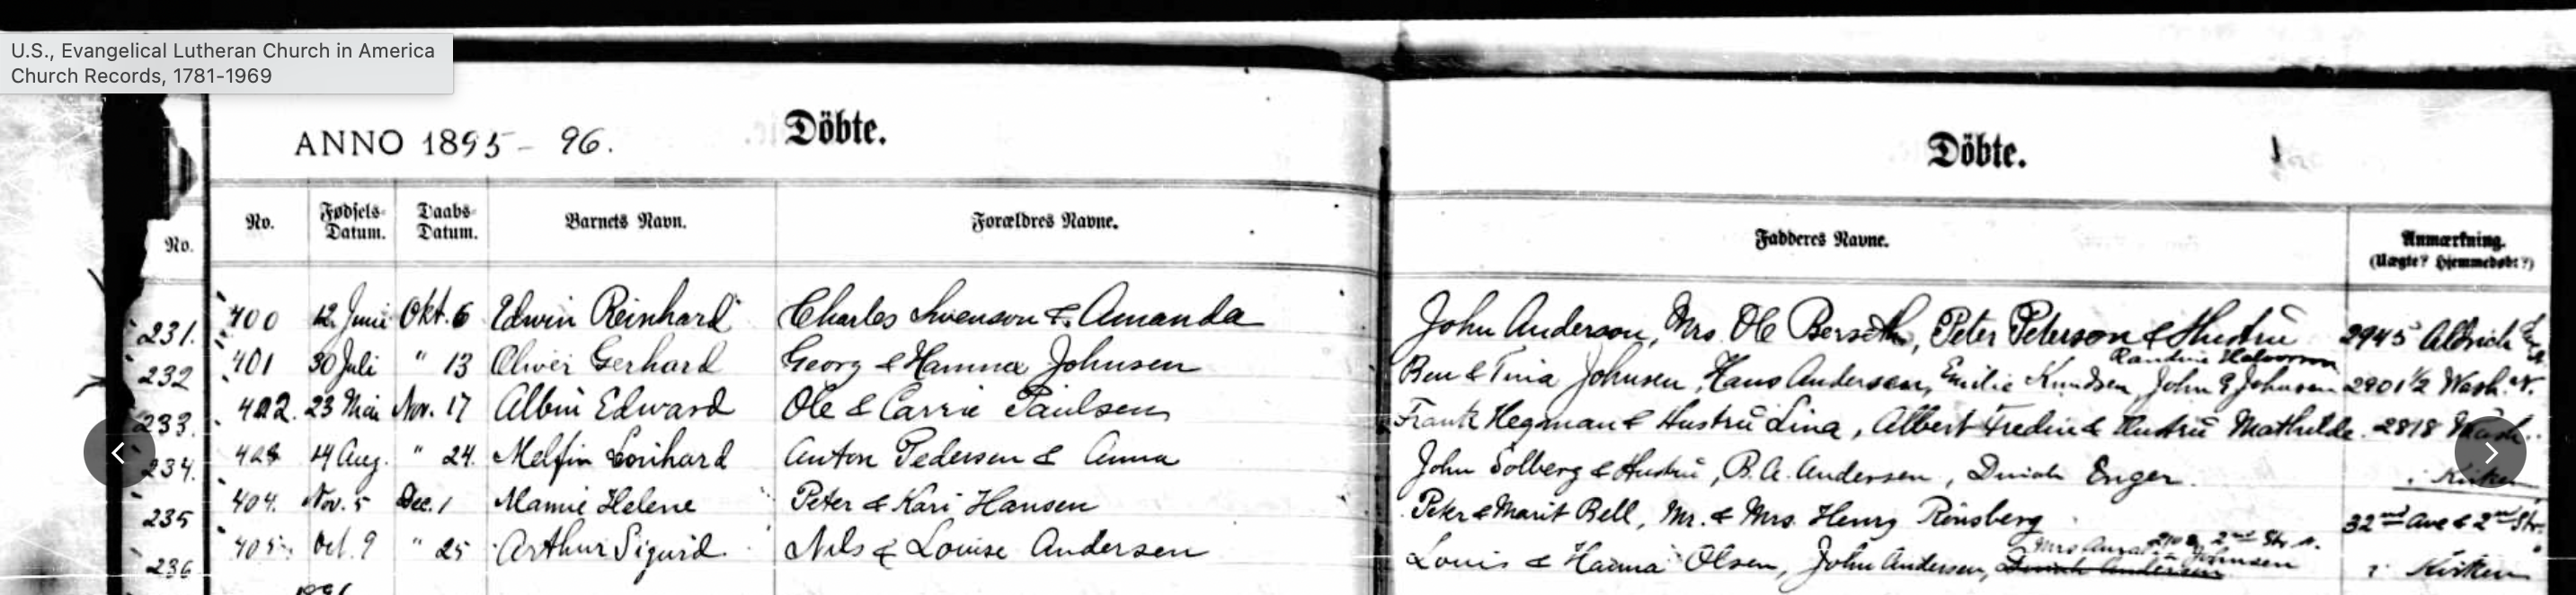 U.S., Evangelical Lutheran Church in America
Church Records, 1781-1969
ANNO 1895 - 96.
Döbte.
Döbte.
No.
No.
Fødsels-Datum.
Daabs-Datum.
Barnets Navn.
Forældres Navne.
Fadderes Navne.
Anmærkning.
(Uægte? Hjemmedøbt?)
231. 400 12 Juni Okt. 6 Edwin Reinhard Charles Swenson & Amanda John Anderson, Mrs. Ole Berseth, Peter Peterson & Hustru 2945 Aldrich
Randine Halvorson
232 401 30 Juli " 13 Oliver Gerhard Georg & Hanna Johnsen Ben & Tina Johnsen, Hans Andersen, Emilie Knudsen, John Johnsen 2901 1/2 Wash. N.
233. 402. 23 Mai Nov. 17 Albin Edward Ole & Carrie Paulsen Frank Hegman & Hustru Lina, Albert Fredin & Hustru Mathilde. 2818 Wash.
234. 403 14 Aug. " 24. Melfin Anton Pedersen & Anna John Solberg & Hustru, B. A. Andersen, Enger. i Kirken
235 404. Nov. 5 Dec. 1 Mamie Helene Peter & Kari Hansen Peter & Marit Bell, Mr. & Mrs. Henry Rinsberg 32nd Ave & 2nd Str.
2nd Str. N.
Mrs Johnsen
236 405. Oct. 9 " 25 Arthur Sigurd Nils & Louise Andersen Louis & Hanna Olsen, John Andersen, i Kirken
1896